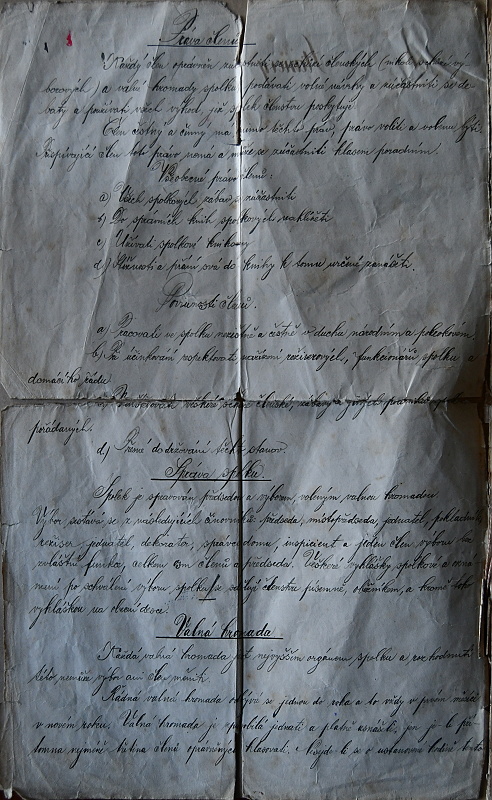 Práva členů
Každý člen oprávněn zúčastniti se schůzí členských (nikoli
) a valné hromady spolku, podávati volné návrhy a zúčastniti se de-
baty a používati všech výhod, jež spolek členstvu poskytuje.
Člen čestný a činný má mimo těchto práv, právo voliti a volenu býti.
Přispívající člen toto právo nemá a může se zúčastniti hlasem poradním.
Všeobecné právo členů:
a) Všech spolkových zábav se zúčastniti
b) Do správních knih spolkových nahlížeti
c) Užívati spolkové knihovny
d) Stížnosti a přání svá do knihy k tomu určené zanášeti.
Povinnosti členů.
a) Pracovati ve spolku nezištně a čestně v duchu národním a pokrokovém
b) Při účinkování respektovati nařízení režiserových, funkcionářů spolku a
domácího řádu
c) schůze členské, zábavy a
pořádaných.
d) Přesné dodržování těchto stanov.
Správa spolku.
Spolek je spravován předsedou a výborem, voleným valnou hromadou
Výbor sestává se z následujících činovníků: předseda, místopředseda, jednatel, pokladník,
režiser, dekorátor, správce domu, inspicient a jeden člen výboru bez
zvláštní funkce, celkem členů a předseda. Veškeré vyhlášky spolkové a ozná-
mení po schválení výboru spolku se sdělují členstvu písemně, oběžníkem, a kromě toho
vyhláškou na obecní desce.
Valná hromada
Každá valná hromada jest nejvyšším orgánem spolku a rozhodnutí
této nemůže výbor ani člen měniti.
Řádná valná hromada odbývá se jednou do roka a to vždy v prvém měsíci
v novém roku. Valná hromada je způsobilá jednati a platně usnášeti, jen je-li pří-
tomna nejméně třetina členů oprávněných hlasovati. Nesejde-li se v ustanovenou hodinu tento